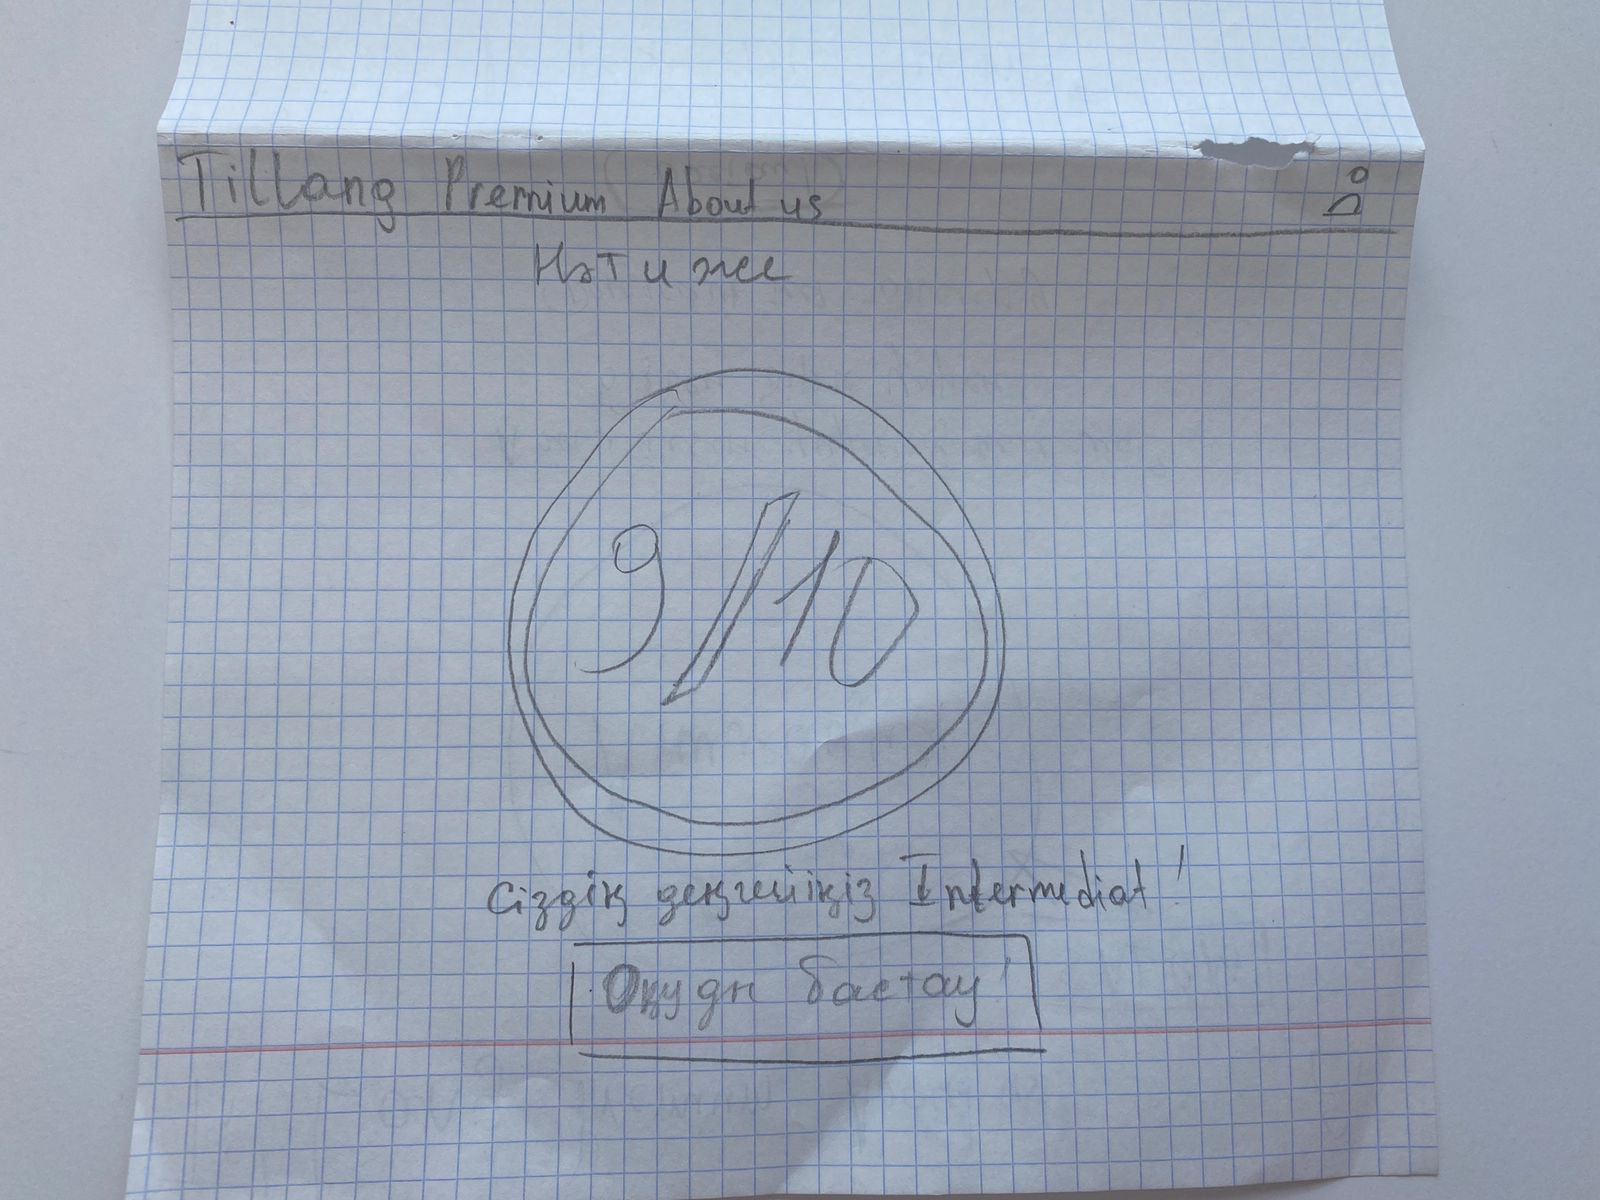 Tillang Premium About us
Нәтиже
9/10
Сіздің деңгейіңіз Intermediat!
Оқуды бастау!